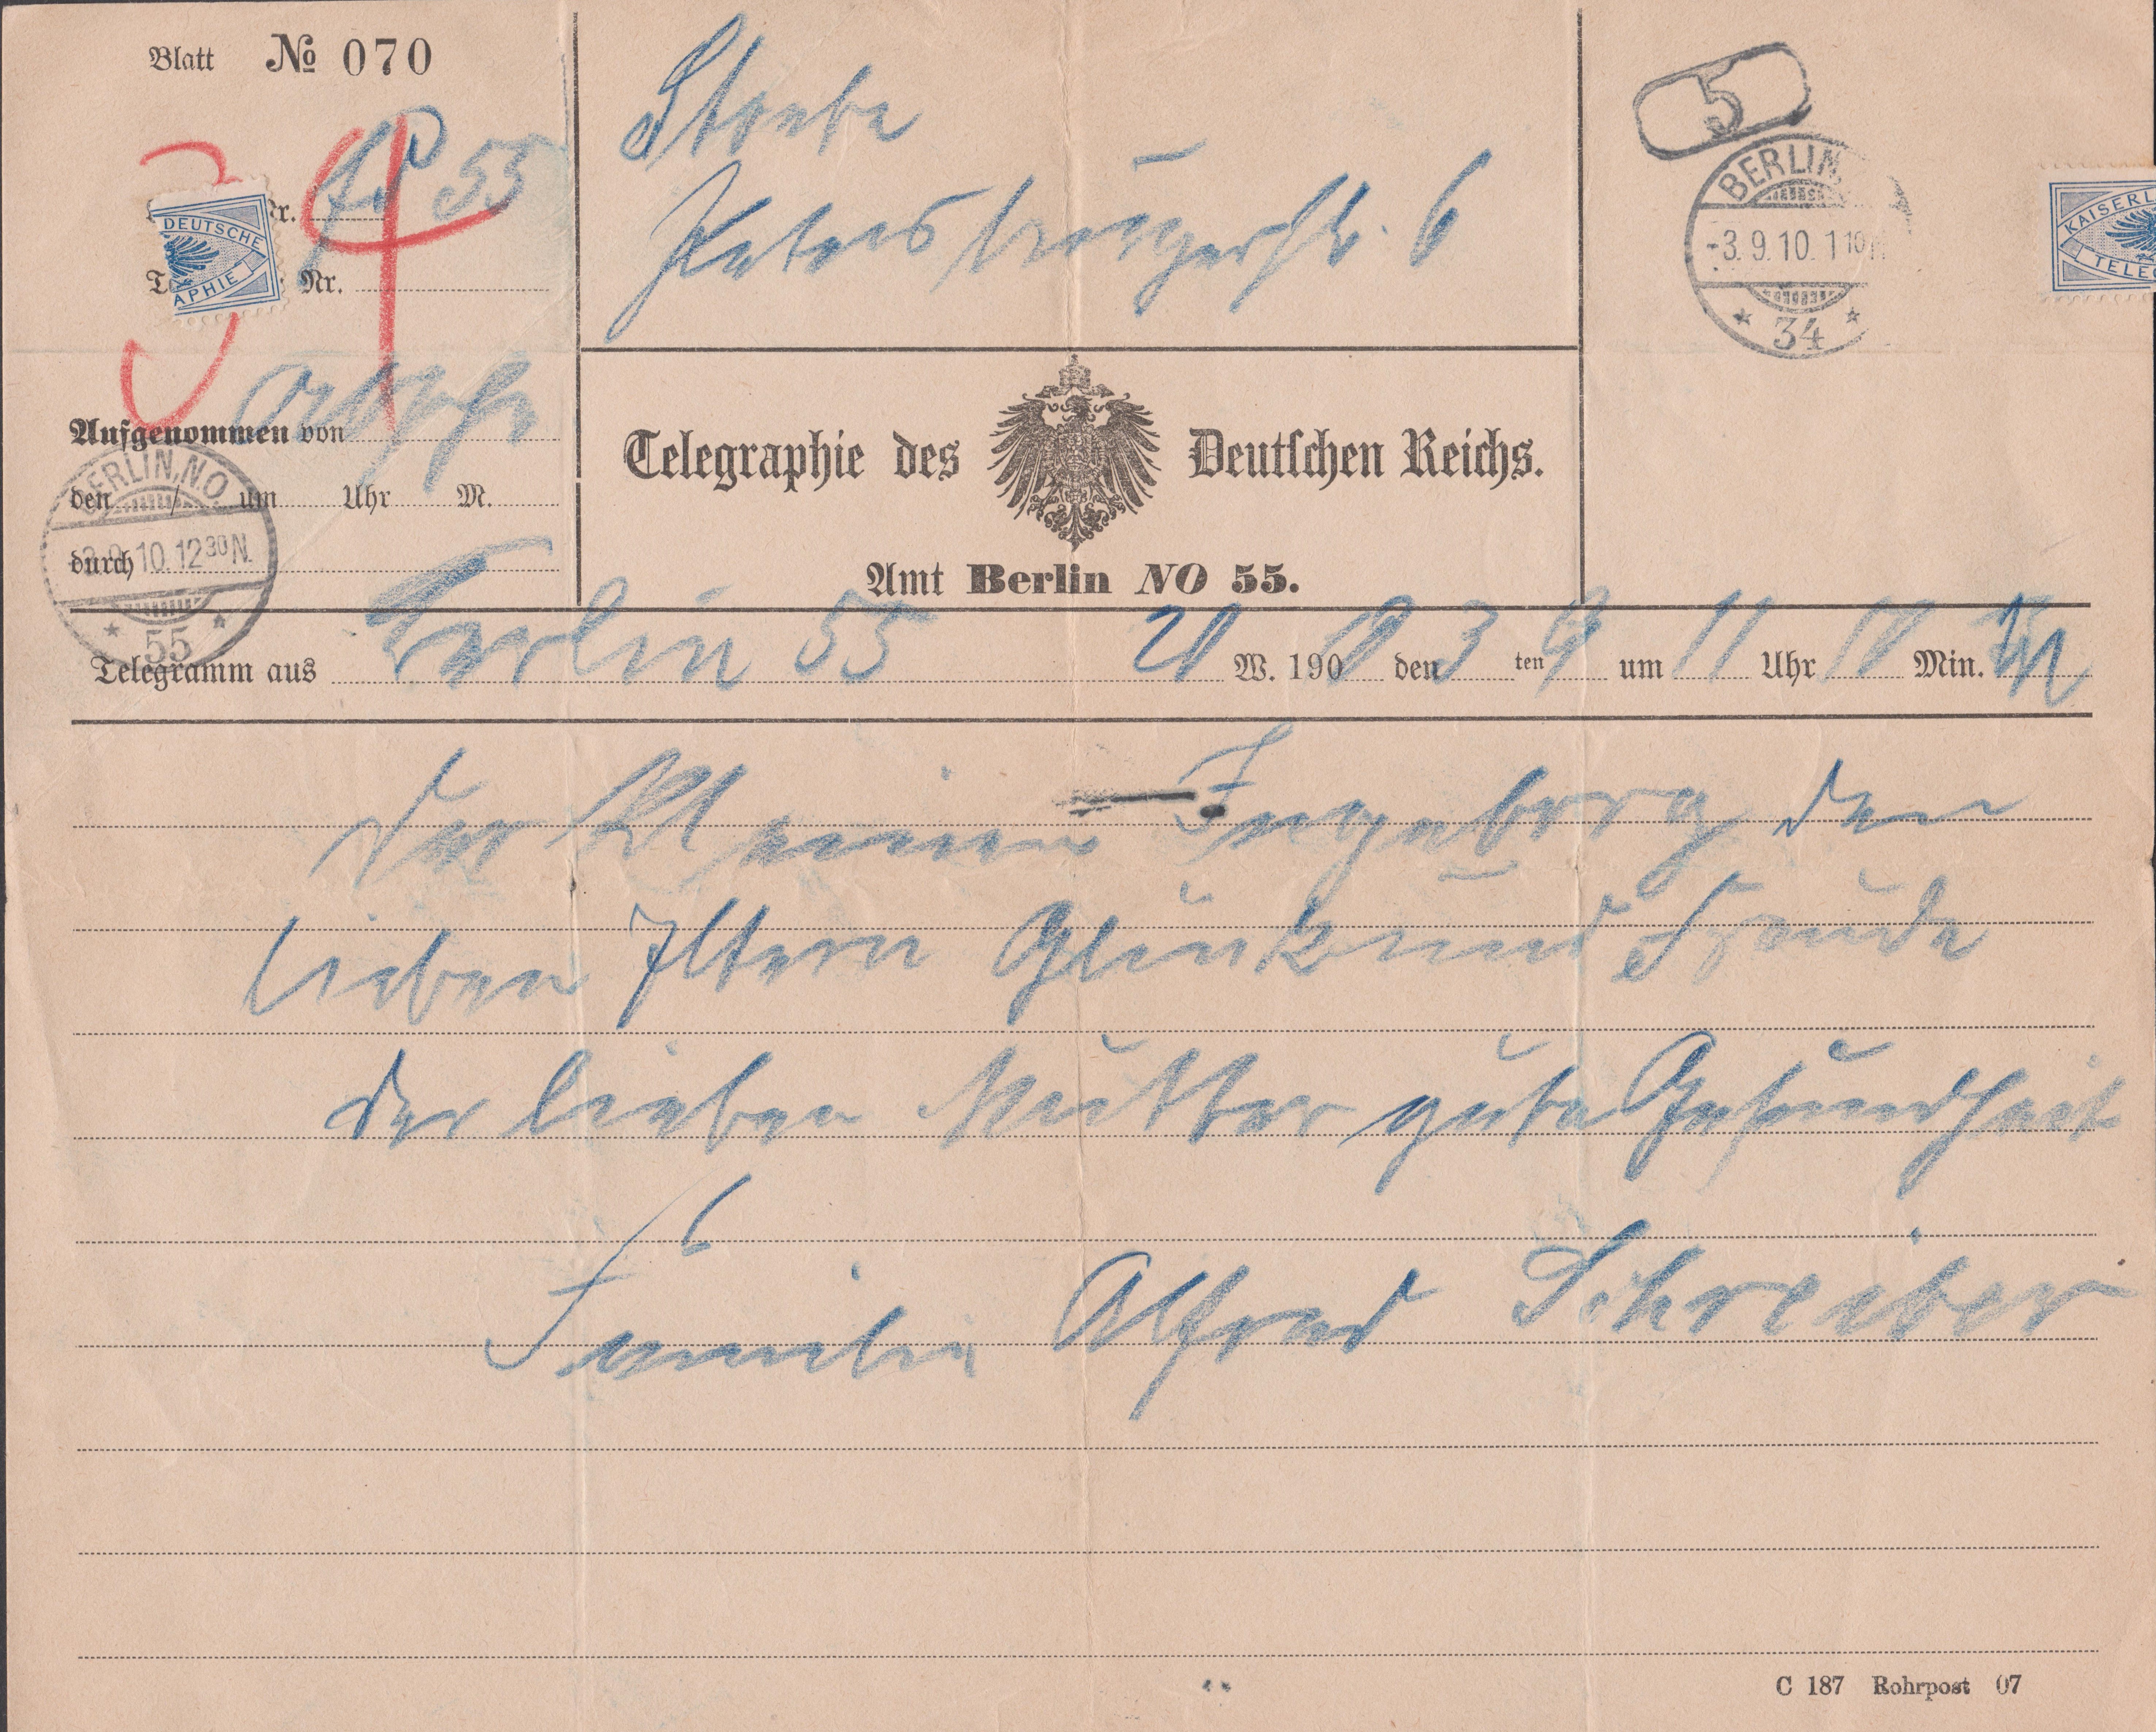 Blatt № 070
34
55
Nr.
DEUTSCHE
APHIE
Nr.
Aufgenommen von
den / um Uhr M.
durch
BERLIN, N.O.
3.9.10.12 30 N.
* 55 *
Petersburgerstr. 6
5
BERLIN,
-3.9.10. 1 10 N
* 34 *
KAISERL
TELE
Telegraphie des Deutschen Reichs.
Amt Berlin NO 55.
Telegramm aus Berlin 55 20 W. 1910 den 3 ten 9 um 11 Uhr 10 Min.
Der kleinen Ingeborg den
lieben Eltern Glück und Freude
der lieben Mutter gute Gesundheit
Familie Alfred Schreiber
C 187 Rohrpost 07